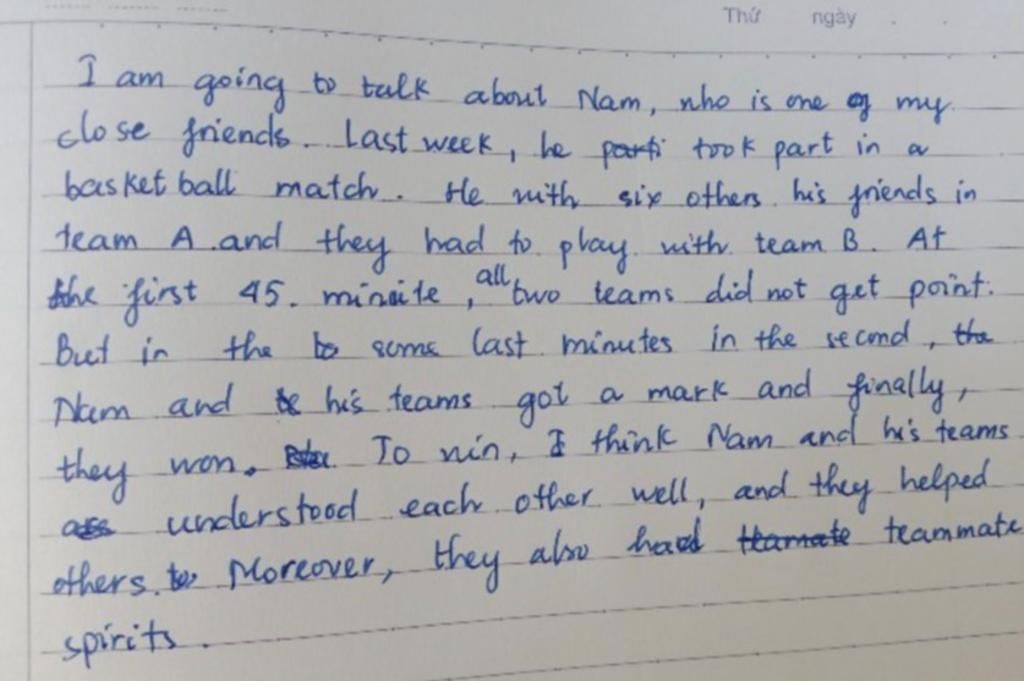 Thứ ngày . .
I am going to talk about Nam, who is one of my
close friends. Last week, he parti took part in a
basket ball match. He with six others his friends in
team A and they had to play with team B. At
the first 45. minite, all two teams did not get point.
But in the to some last minutes in the second, the
Nam and te his teams got a mark and finally,
they won. To win, I think Nam and his teams
understood each other well, and they helped
others. to Moreover, they also had teamate teammate
spirits.